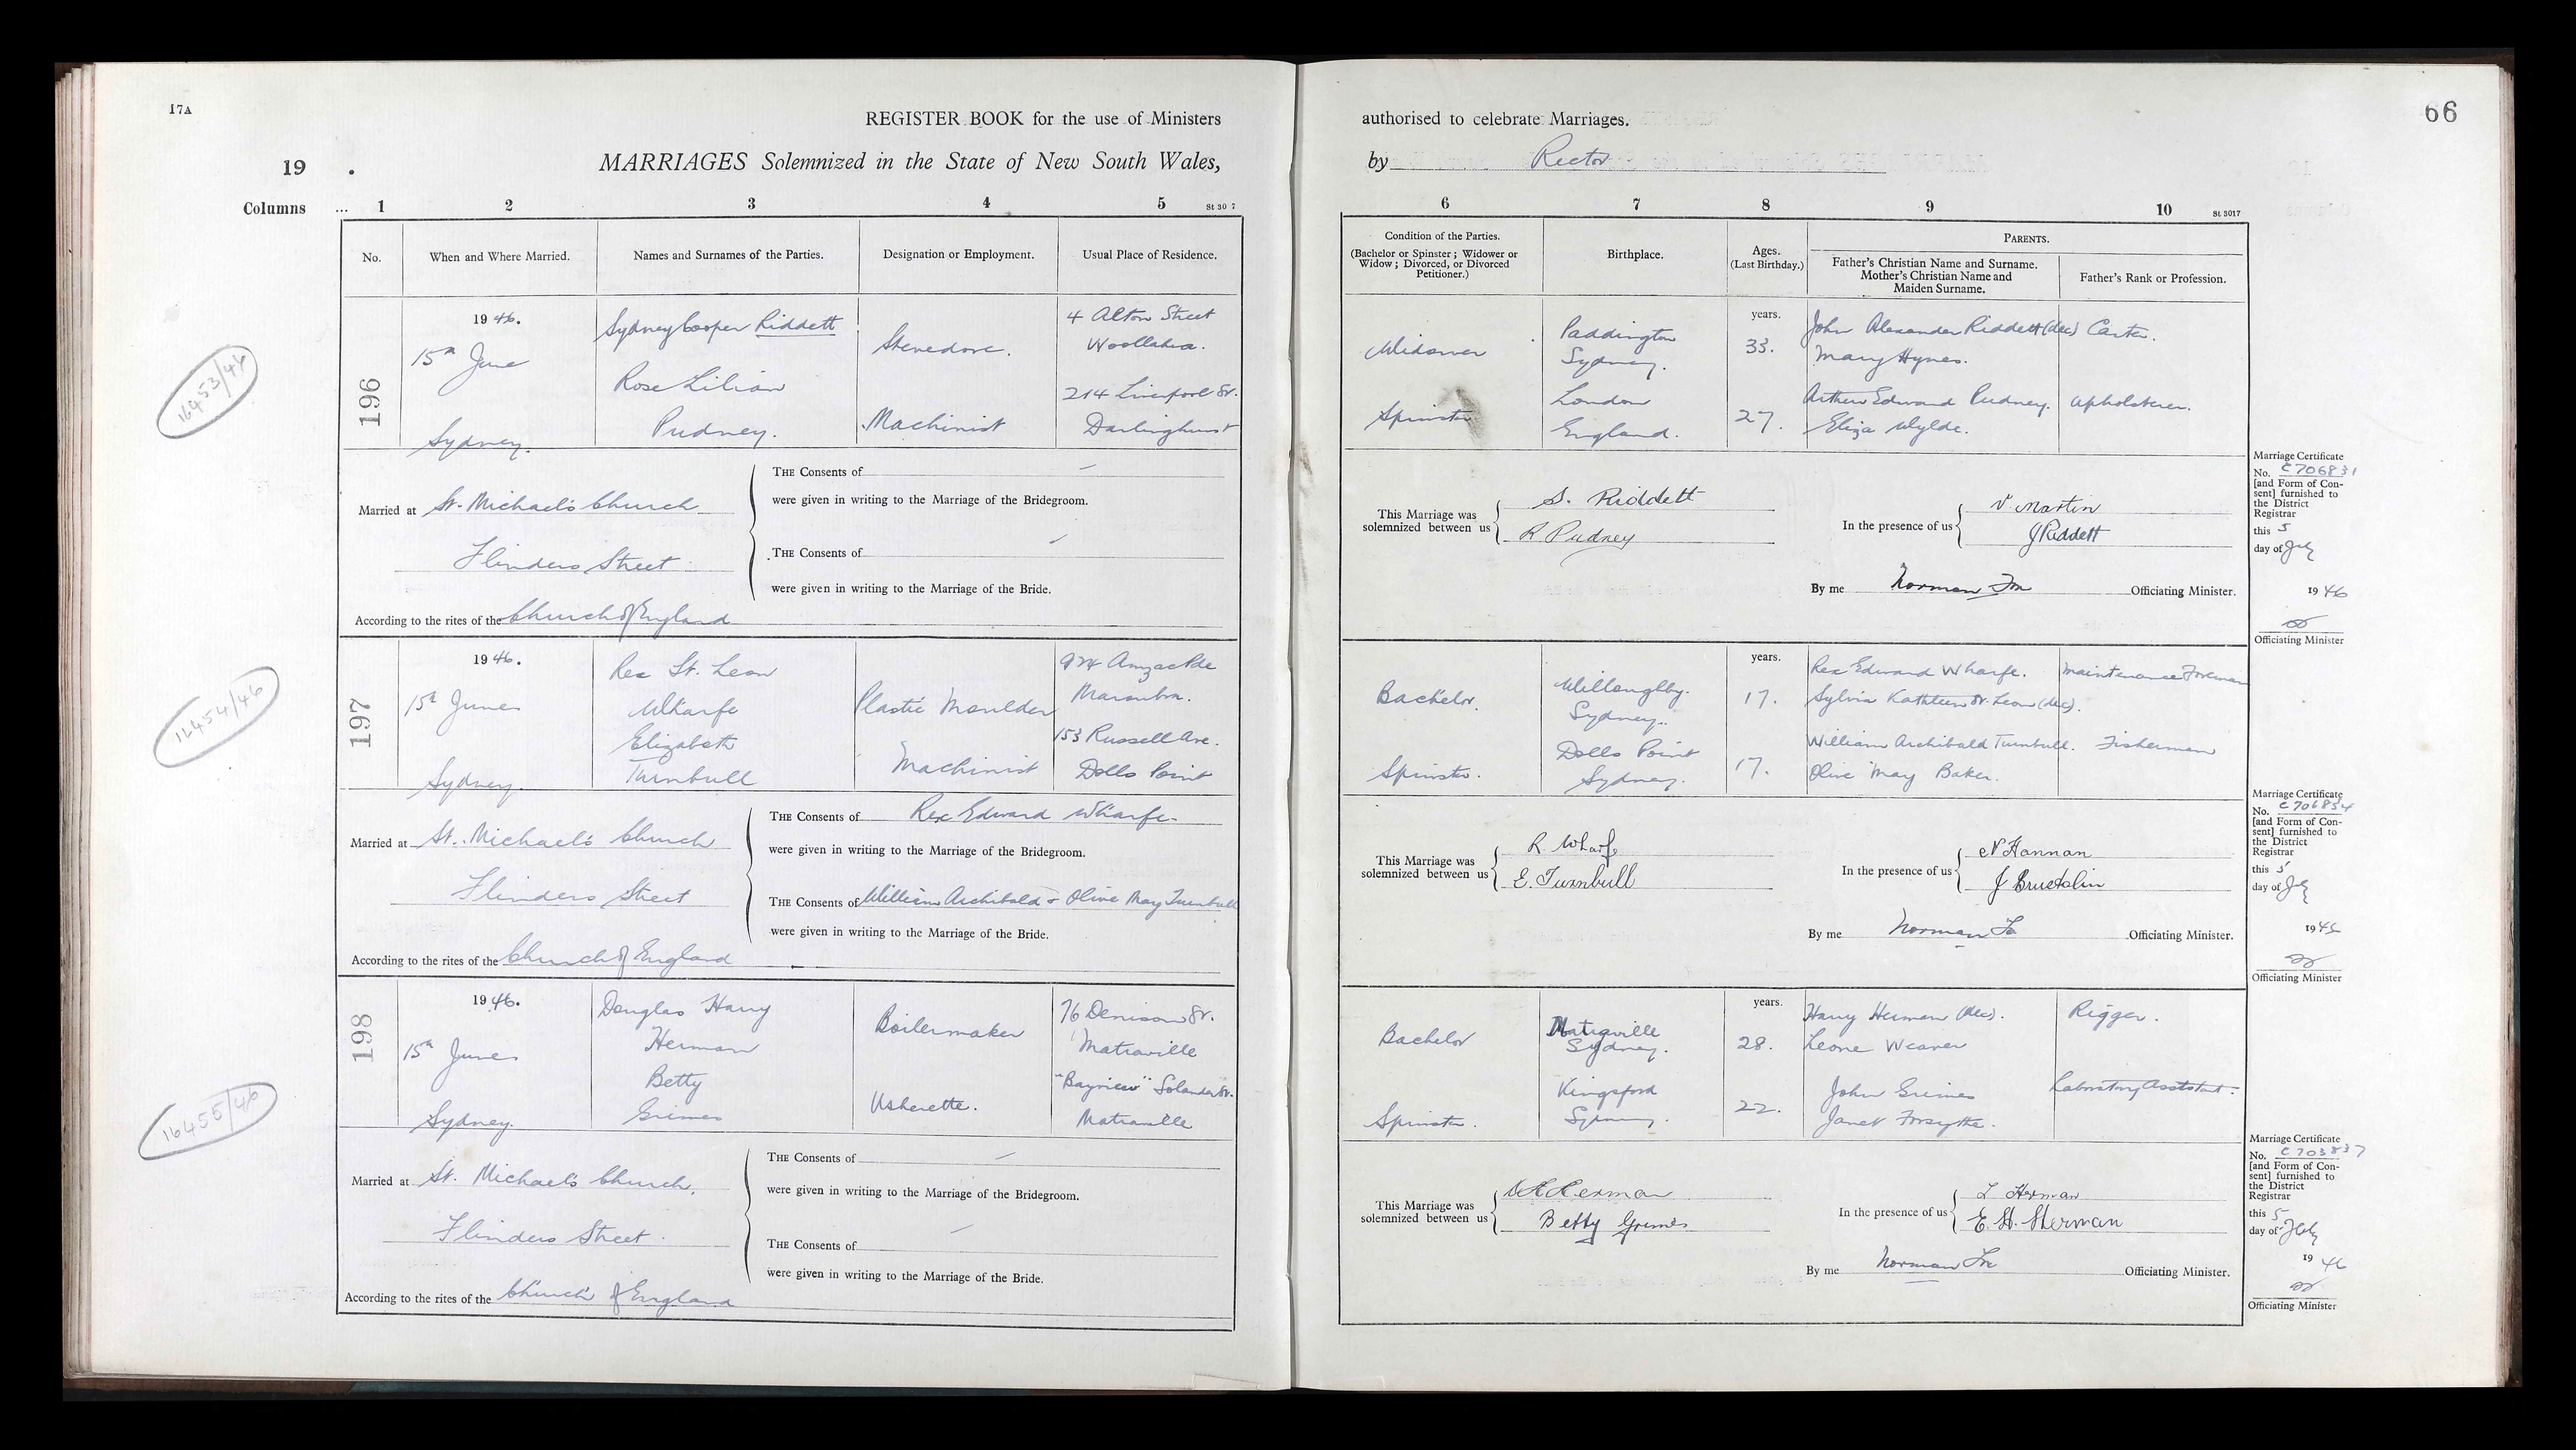 17A
REGISTER BOOK for the use of Ministers
19
MARRIAGES Solemnized in the State of New South Wales,
Columns ... 1 2 3 4 5 St 30 7
No. When and Where Married. Names and Surnames of the Parties. Designation or Employment. Usual Place of Residence.
16453/46
196
1946.
15th June
Sydney.
Sydney Cooper Riddett
Rose Lilian
Pudney.
Stevedore.
Machinist
4 Alton Street
Woollahra.
214 Liverpool St.
Darlinghurst
Married at St. Michael's Church
Flinders Street
According to the rites of the Church of England
THE Consents of
were given in writing to the Marriage of the Bridegroom.
THE Consents of
were given in writing to the Marriage of the Bride.
16454/46
197
1946.
15th June
Sydney.
Rex St. Leon
Wharfe
Elizabeth
Turnbull
Plastic Moulder
Machinist
924 Anzac Pde
Maroubra.
153 Russell Ave.
Dolls Point
Married at St. Michael's Church
Flinders Street
According to the rites of the Church of England
THE Consents of Rex Edward Wharfe
were given in writing to the Marriage of the Bridegroom.
THE Consents of William Archibald & Olive May Turnbull
were given in writing to the Marriage of the Bride.
16455/46
198
1946.
15th June
Sydney.
Douglas Harry
Herman
Betty
Grimes
Boilermaker
Usherette.
76 Denison St.
Matraville
"Bayview" Solander St.
Matraville
Married at St. Michael's Church,
Flinders Street
According to the rites of the Church of England
THE Consents of
were given in writing to the Marriage of the Bridegroom.
THE Consents of
were given in writing to the Marriage of the Bride.
authorised to celebrate Marriages.
66
by Rector
6 7 8 9 10 St 3017
Condition of the Parties.
(Bachelor or Spinster; Widower or
Widow; Divorced, or Divorced
Petitioner.)
Birthplace.
Ages.
(Last Birthday.)
PARENTS.
Father's Christian Name and Surname.
Mother's Christian Name and
Maiden Surname.
Father's Rank or Profession.
Widower
Spinster
Paddington
Sydney.
London
England.
years.
33.
27.
John Alexander Riddett (dec) Carter.
Mary Hynes.
Arthur Edward Pudney. Upholsterer.
Eliza Wylde.
This Marriage was
solemnized between us
S. Riddett
R Pudney
In the presence of us
V Martin
J Riddett
By me Norman Officiating Minister.
Marriage Certificate
No. C706831
[and Form of Con-
sent] furnished to
the District
Registrar
this 5
day of July
1946
Officiating Minister
Bachelor.
Spinster.
Willoughby.
Sydney.
Dolls Point
Sydney.
years.
17.
17.
Rex Edward Wharfe. Maintenance Foreman
Sylvia Kathleen St. Leon (dec).
William Archibald Turnbull. Fisherman
Olive May Baker.
This Marriage was
solemnized between us
R. Wharfe
E. Turnbull
In the presence of us
Hannan
By me Norman Officiating Minister.
Marriage Certificate
No. C706834
[and Form of Con-
sent] furnished to
the District
Registrar
this 5
day of July
19
Officiating Minister
Bachelor
Spinster.
Matraville
Sydney.
Kingsford
Sydney.
years.
28.
22.
Harry Herman (dec). Rigger.
Leone Weaver
John Grimes Laboratory Assistant.
Janet Forsythe.
This Marriage was
solemnized between us
D H Herman
Betty Grimes
In the presence of us
L Herman
E. H. Herman
By me Norman Officiating Minister.
Marriage Certificate
No. C703837
[and Form of Con-
sent] furnished to
the District
Registrar
this 5
day of July
1946
Officiating Minister